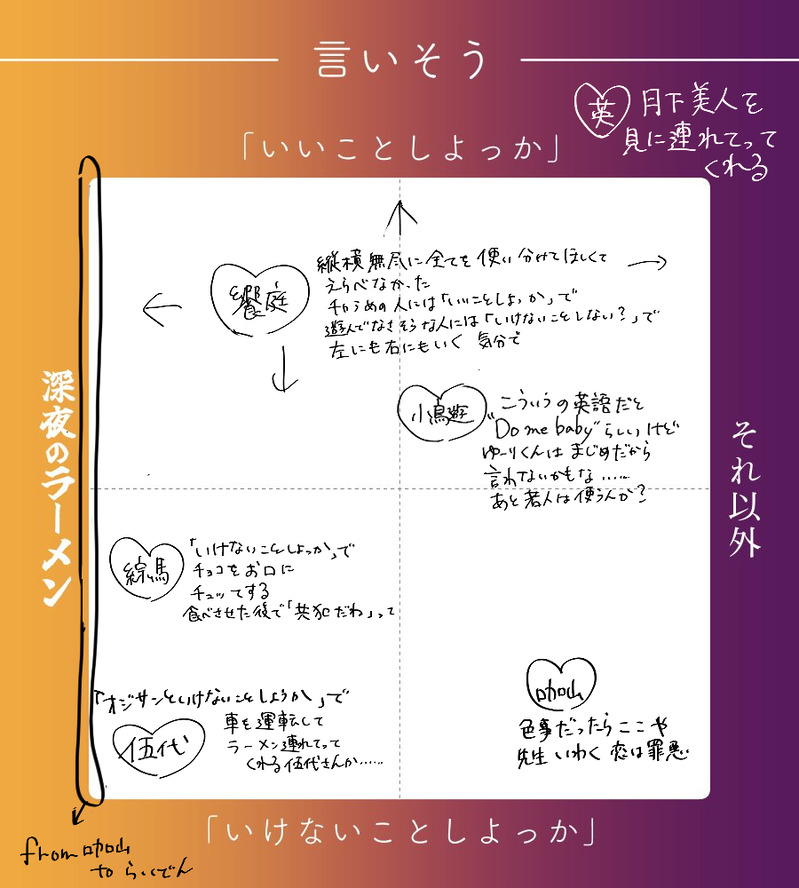 言いそう
「いいことしよっか」
英
月下美人を
見に連れてって
くれる
饗庭
縦横無尽に全てを使い分けてほしくて
えらべなかった
チかうめの人には「いいことしよっか」で
遊んでなさそうな人には「いけないことしない?」で
左にも右にもいく 気分で
小鳥遊
こういうの英語だと
"Do me baby"らしいけど
ゆーりくんはまじめだから
言わないかもな……
あと若人は使うんか?
深夜のラーメン
それ以外
綜馬
「いけないことしよっか」で
チョコをお口に
チュッてする
食べさせた後で「共犯だね」って
「オジサンといけないことしようか」で
伍代
車を運転して
ラーメン連れてって
くれる伍代さんか……
色事だったらここや
先生いわく 恋は罪悪
「いけないことしよっか」
from
to らくでん